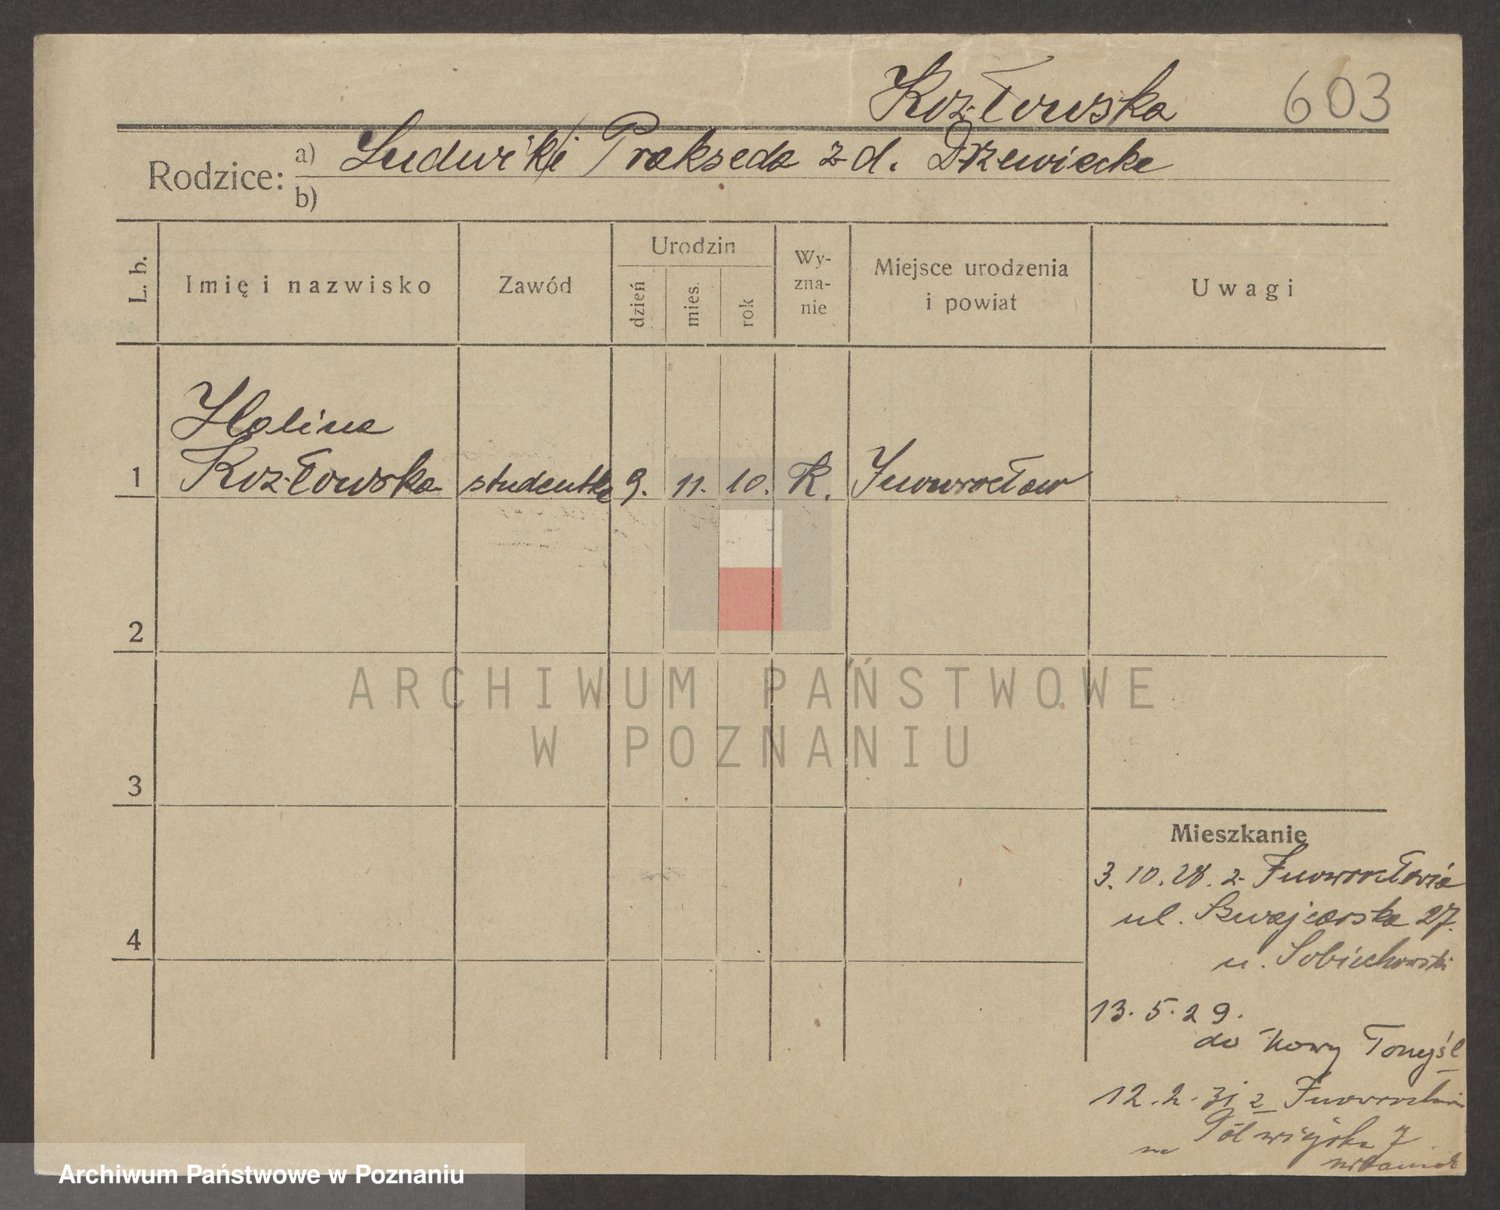 Kozłowska 603
Rodzice: a) Ludwik i Prakseda z d. Drzewiecke
b)
L. b. Imię i nazwisko Zawód Urodzin dzień mies. rok Wyznanie Miejsce urodzenia i powiat Uwagi
Halina
1 Kozłowska studentka 9. 11. 10. R. Inowrocław
2
3
4
Mieszkanie
3. 10. 28. z Inowrocławia
ul. Szwajcarska 27.
u. Sobiechowski
13. 5. 29.
do Nowy Tomyśl
12. 2. 31 z Inowrocławia
Półwiejska 7
ARCHIWUM PAŃSTWOWE
W POZNANIU
Archiwum Państwowe w Poznaniu